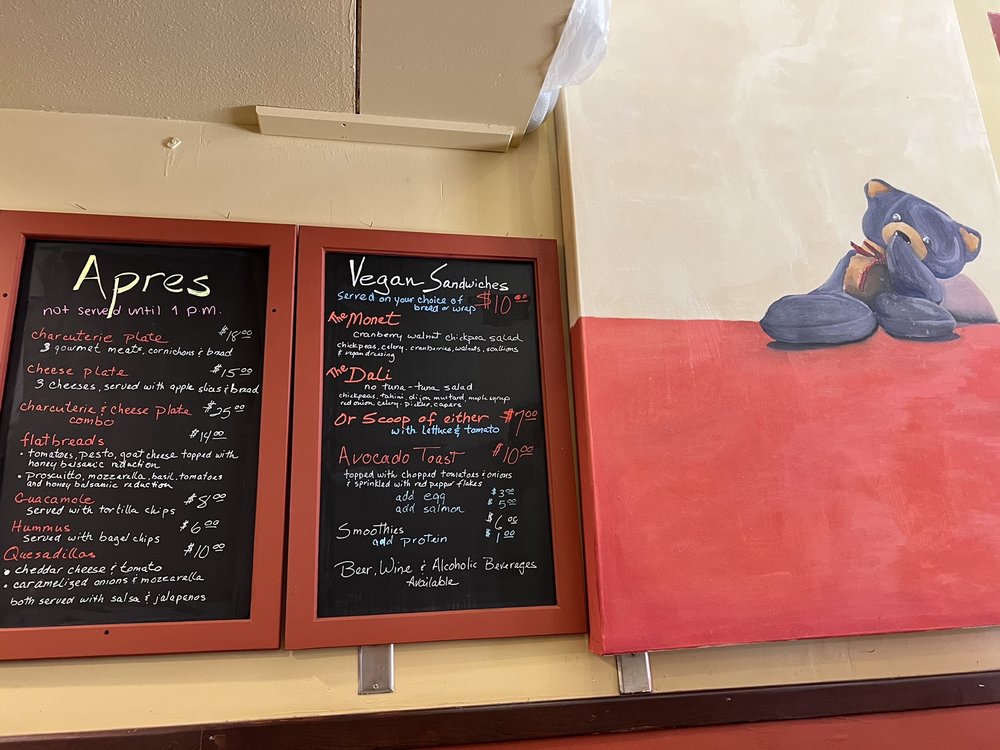 Apres
not served until 1 p.m.
charcuterie plate $18.00
3 gourmet meats, cornichons & bread
Cheese plate $15.00
3 cheeses, served with apple slices & bread
charcuterie & cheese Plate $25.00
combo
flatbreads $14.00
• tomatoes, pesto, goat cheese topped with
honey balsamic reduction
• proscuitto, mozzarella, basil, tomatoes
and honey balsamic reduction
Guacamole $8.00
served with tortilla chips
Hummus $6.00
served with bagel chips
Quesadillas $10.00
• cheddar cheese & tomato
• caramelized onions & mozzarella
both served with salsa & jalapenos
Vegan Sandwiches
served on your choice of $10.00
bread or wrap
The Monet
cranberry walnut chickpea salad
chickpeas, celery, cranberries, walnuts, scallions
& vegan dressing
The Dali
no tuna-tuna salad
chickpeas, tahini, dijon mustard, maple syrup
red onion, celery, pickle, capers
Or Scoop of either $7.00
with lettuce & tomato
Avocado Toast $10.00
topped with chopped tomatoes & onions
& sprinkled with red pepper flakes
add egg $3.00
add salmon $5.00
Smoothies $6.00
add protein $1.00
Beer, Wine & Alcoholic Beverages
Available